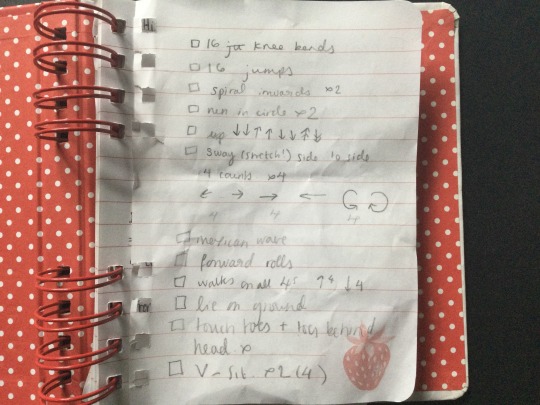 Hi
□ 16 jw knee bends
□ 16 jumps
□ spiral inwards x2
□ run in circle x2
□ up ↓↓↑↑↓↓↑↓
□ sway (stretch!) side to side
4 counts x4
← → → ←
4 4
□ mexican wave
□ forward rolls
□ walks on all 4s ↑4 ↓4
□ lie on ground
□ touch toes + toes behind
head x
□ V-sit x2 (4)